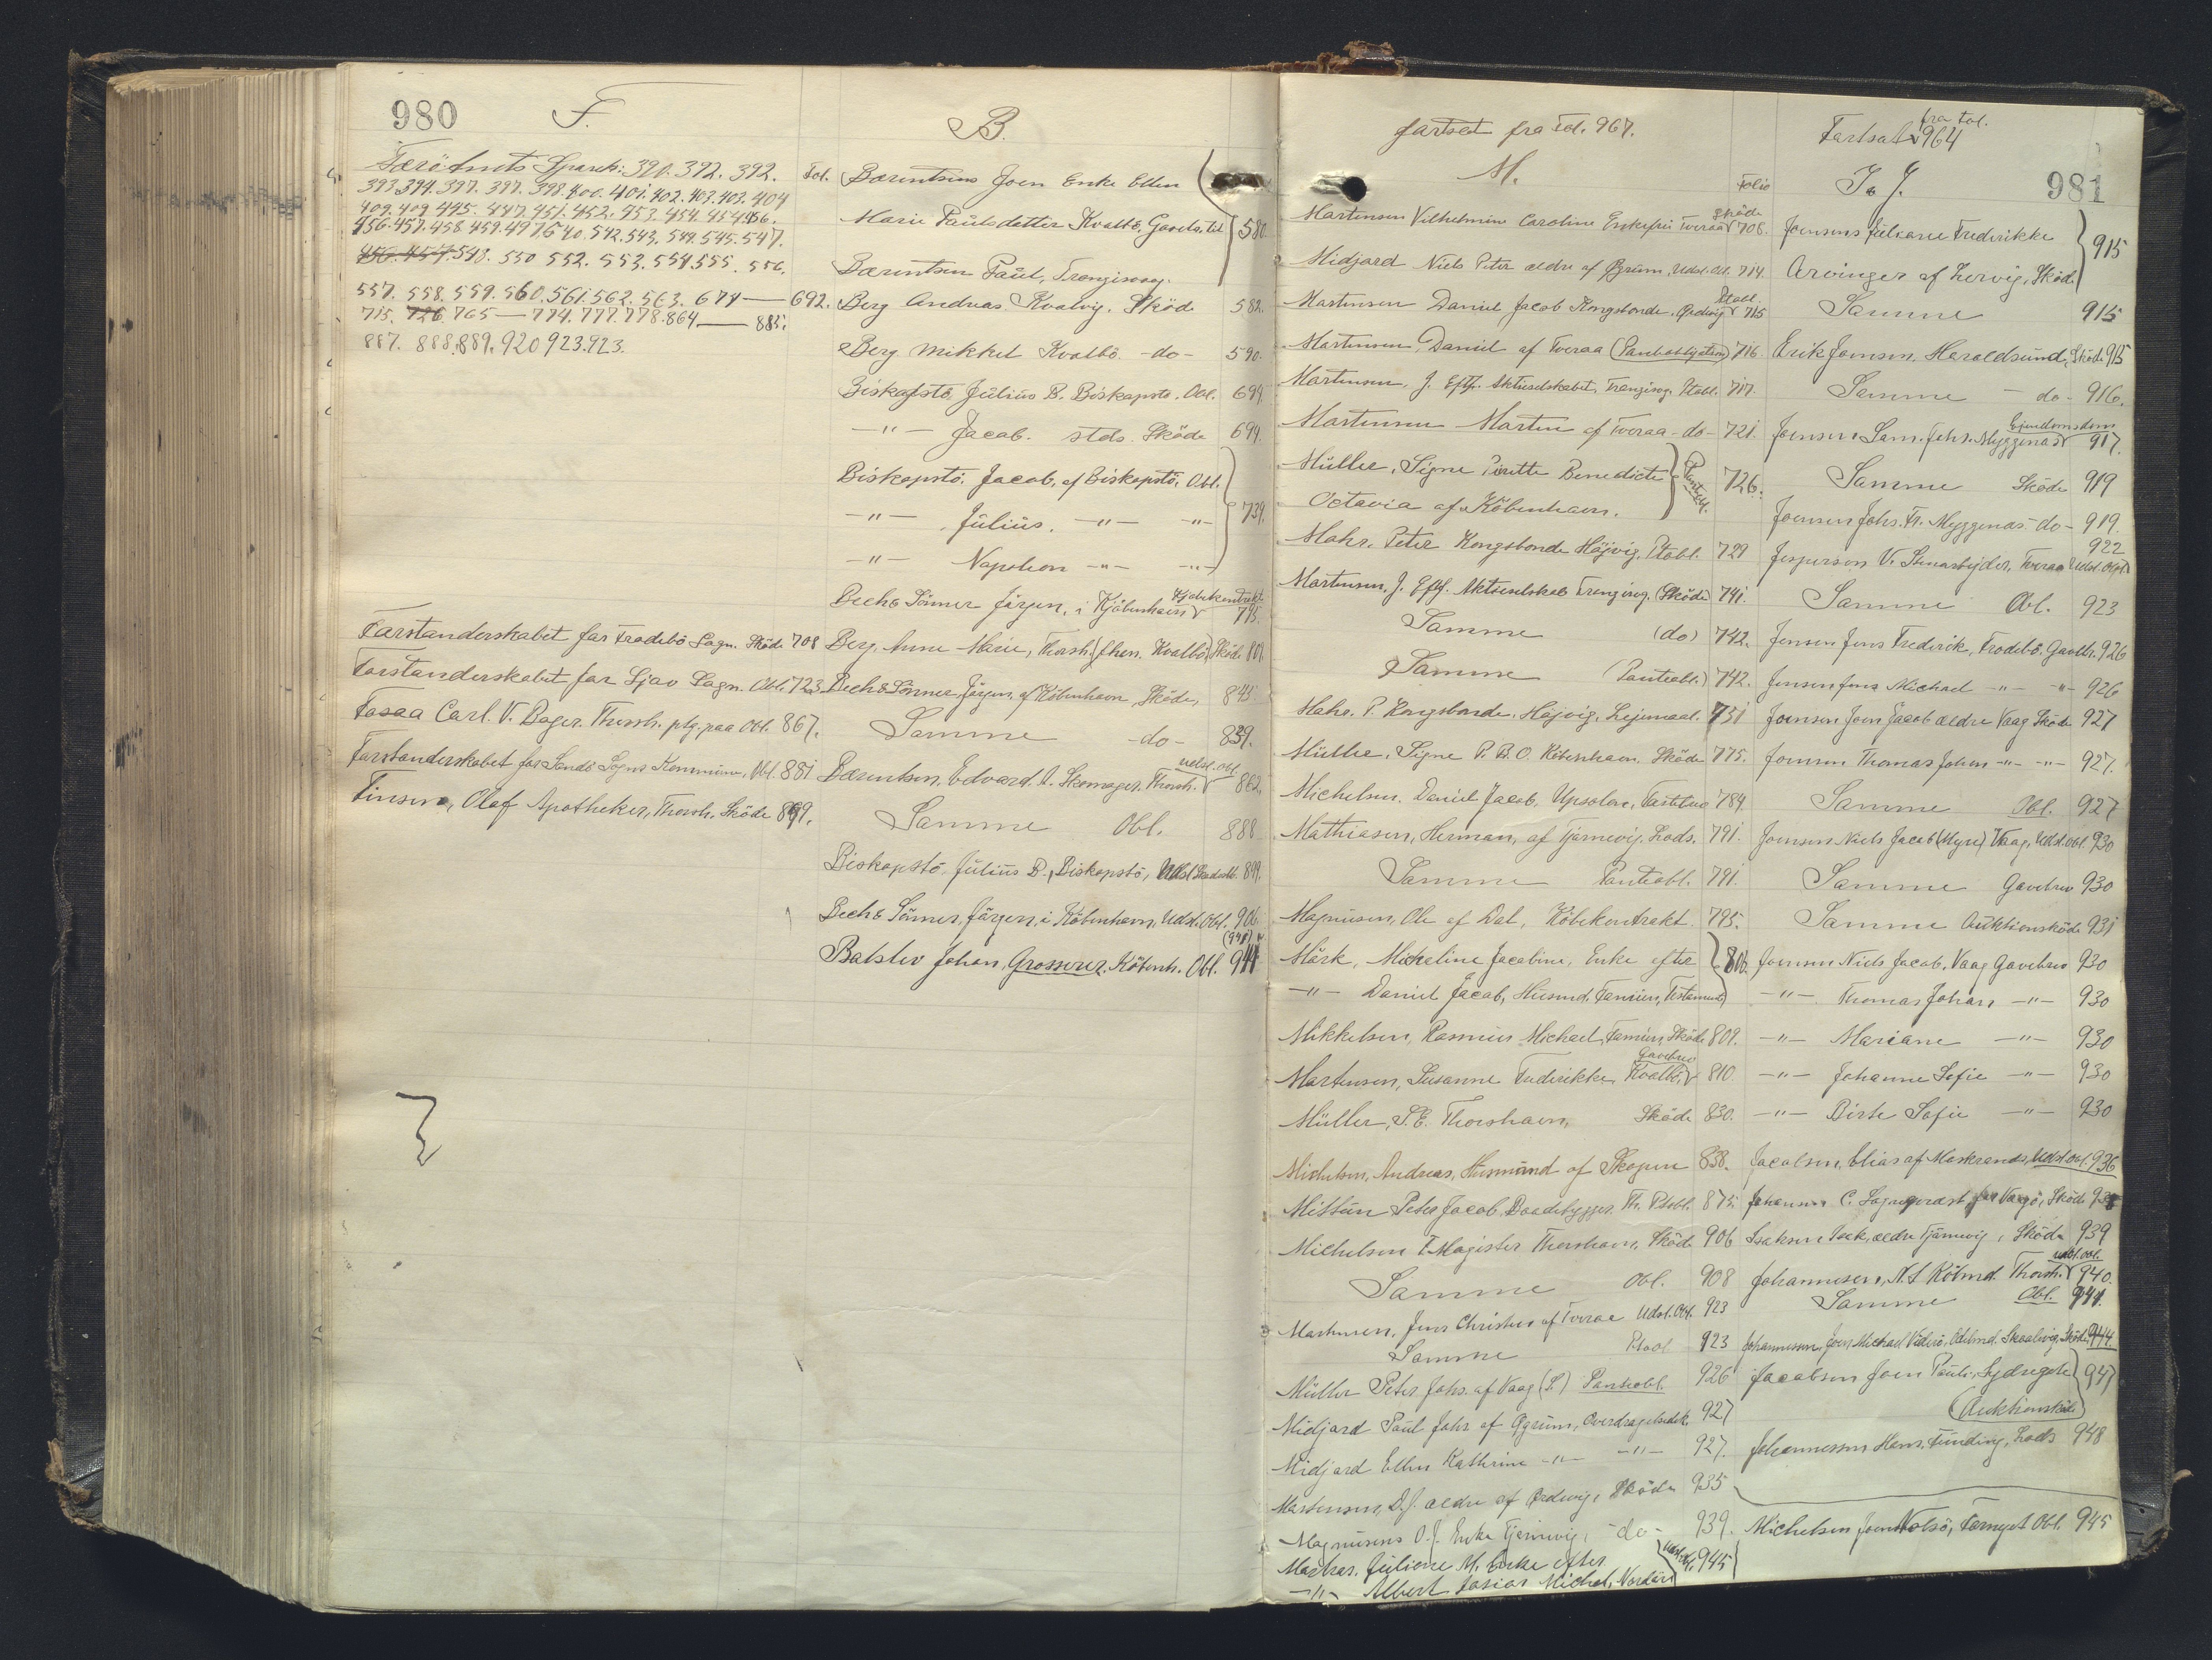 980
F.
Færöernes Sparek: 390. 392. 392.
393. 394. 397. 397. 398. 400. 401. 402. 403. 403. 404
409. 409. 445. 447. 451. 452. 453. 454. 454. 456.
456. 457. 458. 459. 497. 540. 542. 543. 544. 545. 547.
456. 457. 548. 550 552. 553. 554. 555. 556.
557. 558. 559. 560. 561. 562. 563. 674 — 692.
715. 726. 765 — 774. 777. 778. 864. — 885.
887. 888. 889. 920 923. 923.
Forstanderskabet for Frodebö Sogn. Sköde 708
Forstanderskabet for Sjov Sogn. Obl. 723.
Fosaa Carl. V. Bager. Thorsh. plg. paa Obl. 867.
Forstanderskabet for Sands Sogns Kommune, Obl. 881
Finsen, Olaf Apotheker, Thorsh. Sköde 899.
B.
Fol.
Bærentsens Joen Enke Ellen
Marie Poulsdatter Kvalbö, Gavebr. til 580.
Bærentsen Poul, Trangisvaag.
Berg Andreas Kvalvig. Sköde 582.
Berg Mikkel Kvalbö -do- 590.
Biskopstö, Júliús B. Biskopstö. Obl. 694.
-"- Jacob. stds. Sköde 694.
Biskopstö. Jacob, af Biskopstö. Obl.
-"- Júliús. -"- -"- 739.
-"- Napoleon -"- -"-
Bech & Sönner Jörgen, i Kjöbenhavn Kjöbekontrakt 795.
Berg, Anne Marie, Thorsh. (fhen. Kvalbö) Sköde 801
Bech & Sönner, Jörgen, af Köbenhavn, Sköde, 845.
Samme -do- 839.
Bærentsen, Edvard. A. Skomager. Thorsh. udsl. obl. 862.
Samme Obl. 888
Biskopstö, Júliús B., Biskopstö, Udsl. Skadeslb. 899.
Bech & Sönner, Jörgen, i Köbenhavn, Udsl. Obl. 906.
(941)
Balslev Johan, Grosserer, Köbenh. Obl. 944
fortsat fra Fol. 967.
M.
Folio
Martensen Vilhelmine Caroline Enkefru Tveraa Sköde 708.
Midjord Niels Peter ældre af Ögrim, Udsl. Obl. 714.
Martensen Daniel Jacob Kongsbonde, Ördevig Ptobl. 715
Martensen, Daniel af Tveraa (Panteobligation) 716.
Martensen, J. Eftf. Aktieselskabet, Trangisvg. Ptobl. 717.
Martensen Morten af Tveraa -do- 721.
Müller, Signe Pirette Benedicte
Octavia af Köbenhavn. Panteobl. 726.
Mohr. Peter Kongsbonde Höjvig, Ptobl. 729
Martensen, J. Eftf. Aktieselskab Trangisvg. (Sköde) 741.
Samme (do) 742.
Samme (Panteobl.) 742.
Mohr. P. Kongsbonde, Höjvig, Lejemaal. 751
Müller, Signe P. B. O. Köbenhavn, Sköde 775.
Michelsen. Daniel Jacob, Upsolen, 784.
Mathiasen, Herman, af Tjörnevig, Lods. 791.
Samme Panteobl. 791.
Magnúsen, Ole af Dal, Köbekontrakt 795.
Mörk, Micheline Jacobine, Enke efter
-"- Daniel Jacob, Husmd. Famien, Testament 806.
Mikkelsen, Rasmús Michael, Famien, Sköde 809.
Martensen, Susanne Frederikke, Kvalbö, Gavebrev 810
Müller, S. E. Thorshavn, Sköde 830.
Michelsen, Andreas, Husmand af Skopen 838.
Mittún Peter Jacob, Baadebygger. Th. Ptobl. 875.
Michelsen F. Magister Thorshavn, Sköde 906
Samme Obl. 908
Martensen, Jens Christen af Tveraa Udsl. Obl. 923
Samme Ptobl 923
Müller Peter Johs. af Vaag (S.) Panteobl. 926
Midjord Poúl Johs af Ögrim, Overdragelsesdok. 927
Midjord Ellen Kathrine -"- -"- 927.
Martensen, D. J. ældre af Ördevig, Sköde 935
Magnúsens O. J. Enke Tjörnevig, -do- 939.
Mortens. Júliane M. Enke efter
-"- Albert Josias Michel, Nordöre Udsl. Obl. 945
fra Fol.
Fortsat 964
I & J.
981
Joensens Júliane Frederikke
Arvinger af Lervig, Sköde 915
Samme 915
Erik Joensen, Haraldsúnd, Sköde 915
Samme -do- 916.
Joensen Sam. Johs. Myggenæs Ejendomsdom 917.
Samme Sköde 919
Joensen Johs. Fr. Myggenæs -do- 919.
922
Jespersen V. Stenarbejder, Tveraa Udsl. Obl.
Samme Obl. 923
Jensen Jens Frederik, Frodebö. Gavebr. 926
Jensen Jens Michael -"- -"- 926
Joensen Joen Jacob ældre Vaag Sköde 927
Joensen Thomas Johan -"- -"- 927.
Samme Obl. 927
Joensen Niels Jacob (Myre) Vaag, Udsl. obl. 930
Samme Gavebrev 930
Samme Auktionsköde 931
Joensen Niels Jacob, Vaag Gavebrev 930
-"- Thomas Johan -"- 930
-"- Mariane -"- 930
-"- Johanne Sofie -"- 930
-"- Birte Sofie -"- 930
Jacobsen, Elias af Morkranes, Udsl. obl. 936
Johannes C. Sognepræst for Vaagö, Sköde 938
Isaksen Isak, ældre Tjörnevig, Sköde 939
Johannesen, N. S. Köbmd. Thorsh. udsl. obl. 940.
Samme Obl. 941.
Johannessen, Joen Michael Viderö, Odelsmd. Skaalevig, Sköde 944.
Jacobsen Joen Poúli, Sydregöte 947
(Auktionsköde)
Johannessen Hans, Fúnding, Lods 948
Michelsen Joen Nolsö, Fornyet Obl. 945